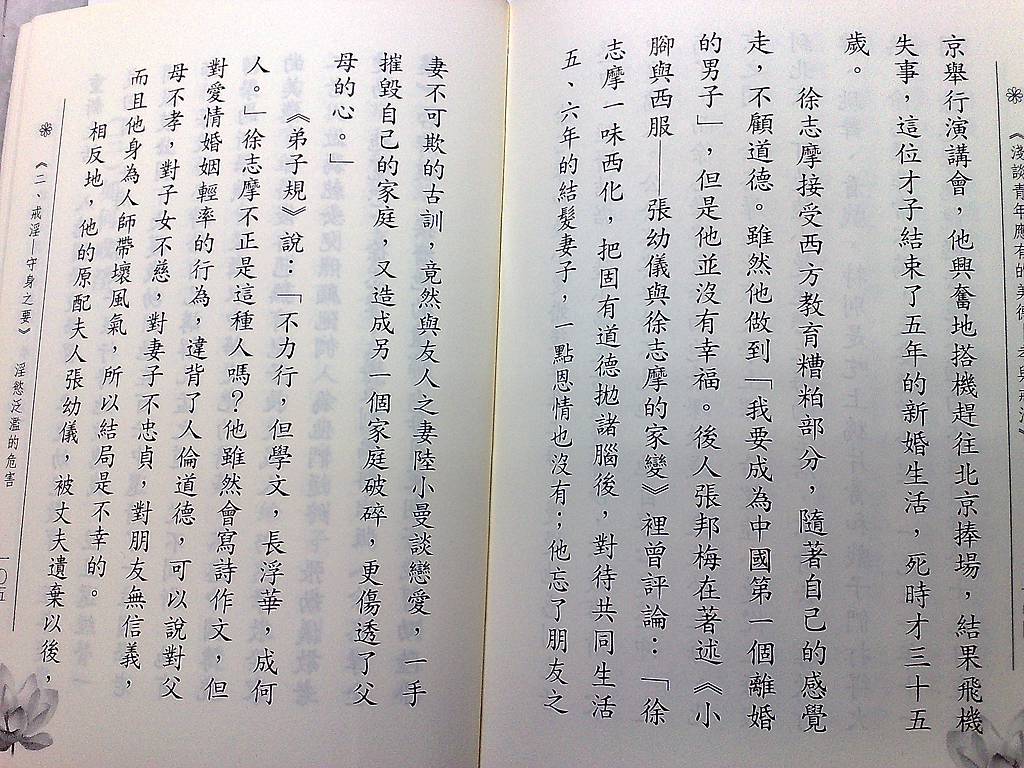 《淺談青年應有的美德
京舉行演講會，他興奮地搭機趕往北京捧場，結果飛機
失事，這位才子結束了五年的新婚生活，死時才三十五
歲。
徐志摩接受西方教育糟粕部分，隨著自己的感覺
走，不顧道德。雖然他做到「我要成為中國第一個離婚
的男子」，但是他並沒有幸福。後人張邦梅在著述《小
腳與西服——張幼儀與徐志摩的家變》裡曾評論：「徐
志摩一味西化，把固有道德拋諸腦後，對待共同生活
五、六年的結髮妻子，一點恩情也沒有；他忘了朋友之
妻不可欺的古訓，竟然與友人之妻陸小曼談戀愛，一手
摧毀自己的家庭，又造成另一個家庭破碎，更傷透了父
母的心。」
《弟子規》說：「不力行，但學文，長浮華，成何
人。」徐志摩不正是這種人嗎？他雖然會寫詩作文，但
對愛情婚姻輕率的行為，違背了人倫道德，可以說對父
母不孝，對子女不慈，對妻子不忠貞，對朋友無信義，
而且他身為人師帶壞風氣，所以結局是不幸的。
相反地，他的原配夫人張幼儀，被丈夫遺棄以後，
《二、戒淫—守身之要》 淫慾泛濫的危害
一〇五